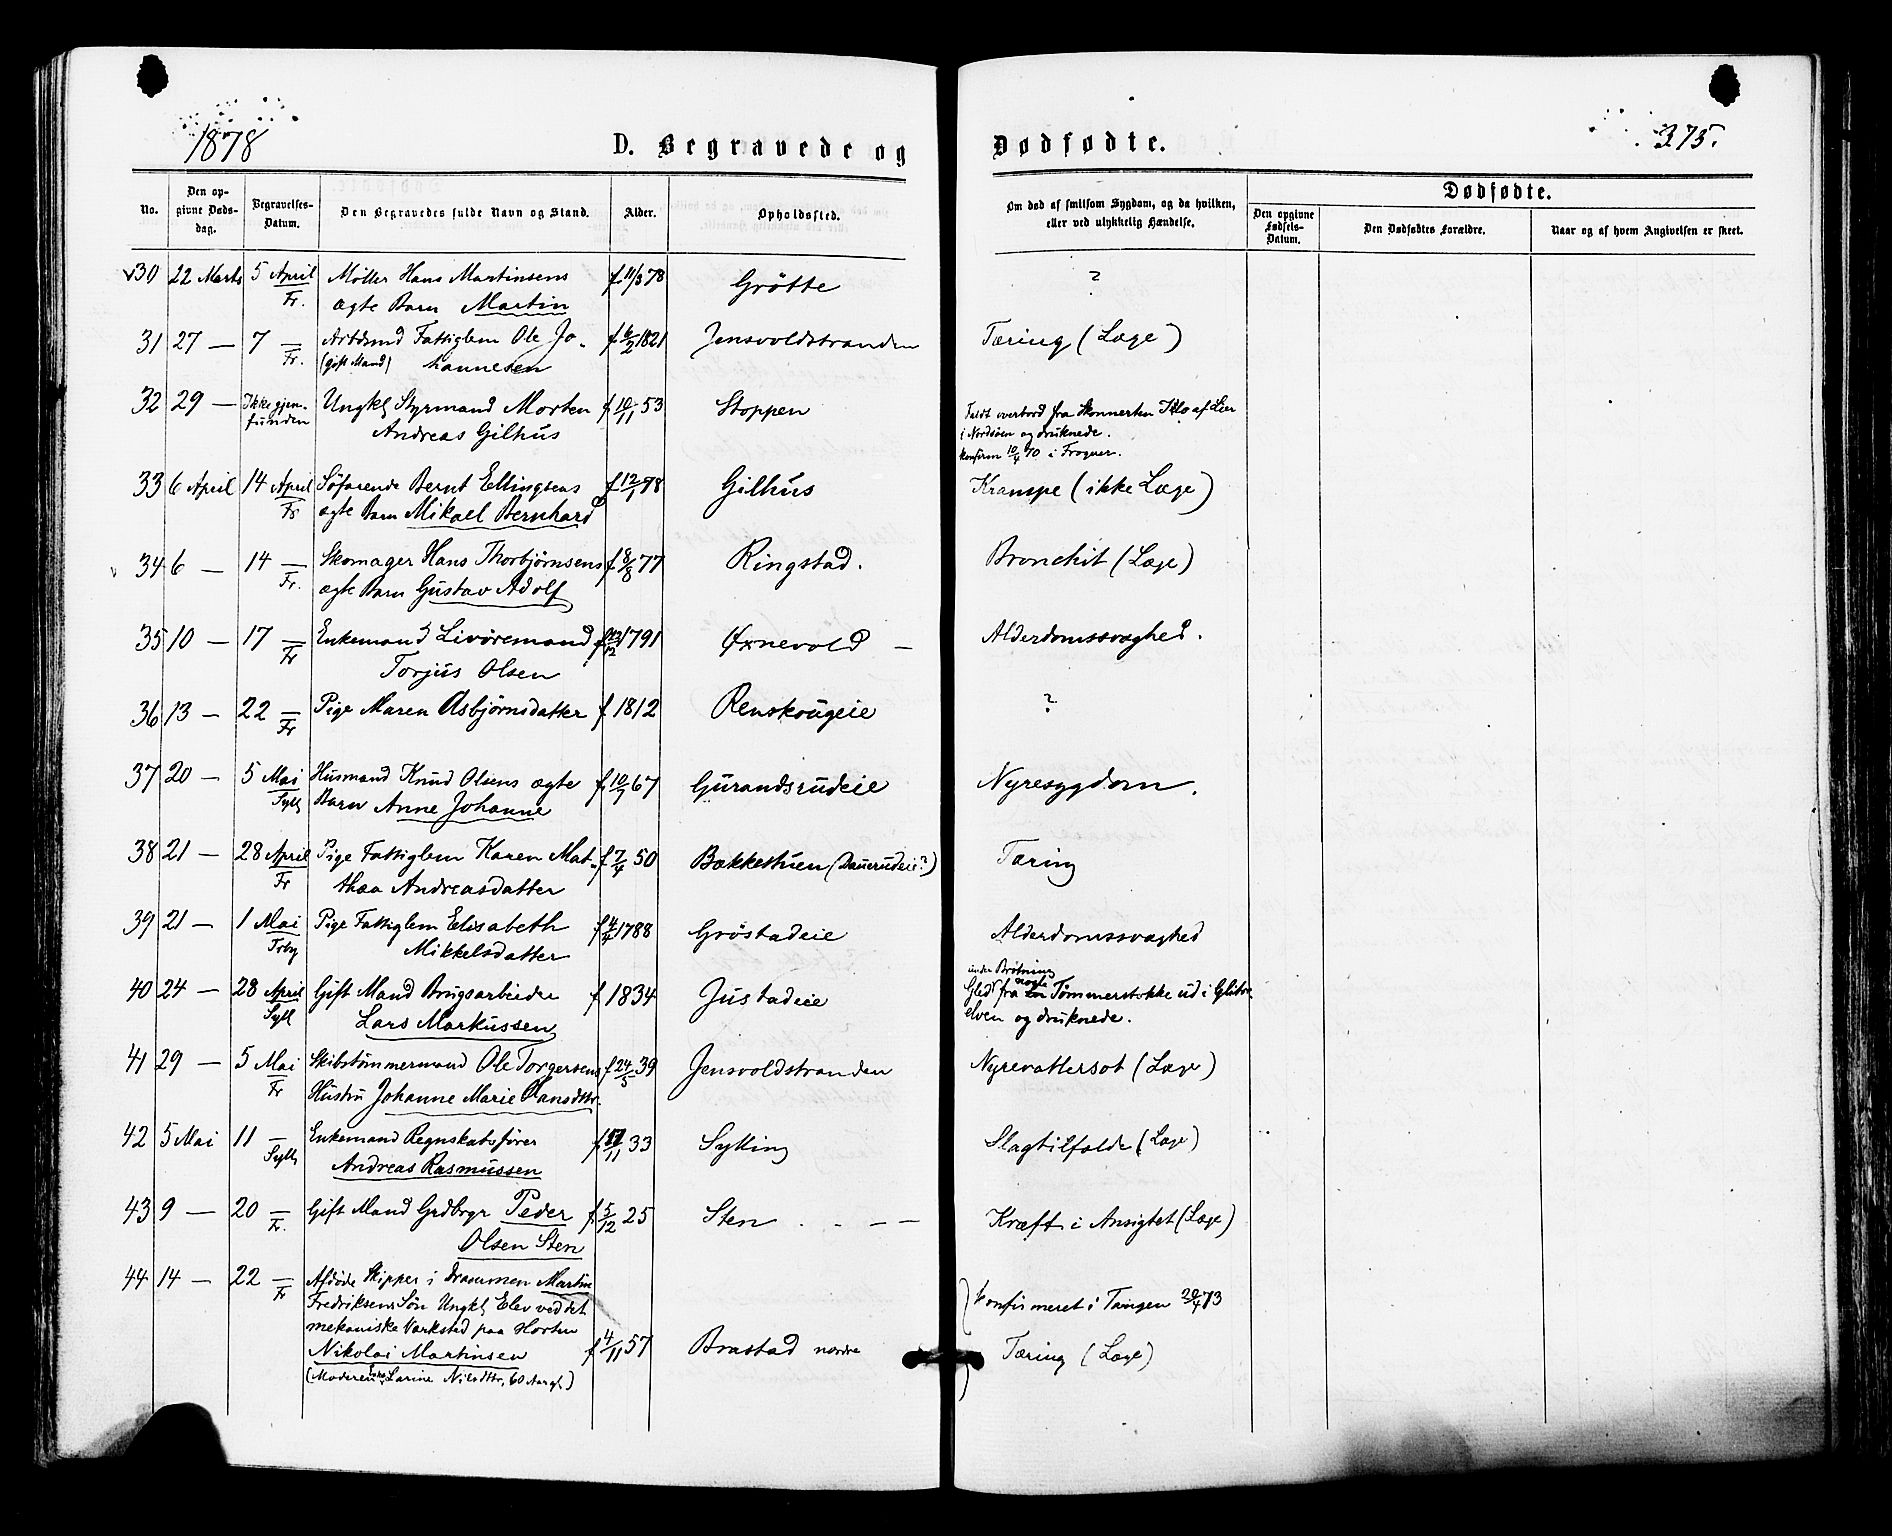 1878
D. Begravede og
Dødfødte.
375.
No.
Den opgivne Dødsdag.
Begravelses-Datum.
Den Begravedes fulde Navn og Stand.
Alder.
Opholdssted.
Om død af smitsom Sygdom, og da hvilken, eller ved ulykkelig Hændelse.
Dødfødte.
Den opgivne Fødsels-Datum.
Den Dødfødtes Forældre.
Naar og af hvem Angivelsen er skeet.
30 22 Marts 5 April Møller Hans Martinsens f. 11/3 78 Grötte ?
Fr. ægte Barn Martin
31 27 — 7 — Arbdsmd Fattiglem Ole Jo- f. 6/2 1821 Jensvoldstranden Tæring (Læge)
Fr. (gift Mand) hannesen
32 29 — Ikke gjen- Ungkl Styrmand Morten f. 10/11 53 Stoppen Faldt overbord fra Skonnerten Klo af Lier
funden Andreas Gilhus i Nordsöen og druknede.
konfirm 10/4 70 i Frogner.
33 6 April 14 April Söfarende Bernt Ellingsens f. 12/1 78 Gilhus Krampe (ikke Læge)
Fr ægte Barn Mikael Bernhard
34 6 — 14 — Skomager Hans Thorbjørnsens f. 8/8 77 Ringstad. Bronchit (Læge)
Fr. ægte Barn Gustav Adolf
35 10 — 17 — Enkemand Livøremand 1791 Alderdomssvaghed.
Fr Torjus Olsen
36 13 — 22 — Pige Maren Asbjørnsdatter f. 1812 Renskougeie ?
Fr
37 20 — 5 Mai Husmand Knud Olsens ægte f. 10/7 67 Gurandsrudeie Nyresygdom.
Syll Barn Anne Johanne
38 21 — 28 April Pige Fattiglem Karen Mat- f. 7/4 50 Bakkestuen (Dauerudeie?) Tæring
Fr thea Andreasdatter
39 21 — 1 Mai Pige Fattiglem Elisabeth f. 4/4 1788 Gröstadeie Alderdomssvaghed
Trbg Mikkelsdatter
40 24 — 28 April Gift Mand Brugsarbeider f. 1834 Justadeie under Brötning
Syll Lars Markussen Gled fra nogle Tømmerstokke ud i Glitre-
elven og druknede.
41 29 — 5 Mai Skibstömmermand Ole Torgersens f. 24/5 39 Jensvoldstranden Nyrevattersot (Læge)
Fr Hustru Johanne Marie Hansdttr.
42 5 Mai 11 — Enkemand Regnskabsfører 33 Sylling Slagtilfælde (Læge)
Syll Andreas Rasmussen
43 9 — 20 — Gift Mand Grdbrgr Peder f. 5/12 25 Sten Kræft i Ansigtet (Læge)
Fr. Olsen Sten
44 14 — 22 — Afdøde Skipper i Drammen Martin
Fr Fredriksens Sön Ungkl Elev ved det Konfirmeret i Tangen 20/4 73
mekaniske Værksted paa Horten
Nikolai Martinsen f. 4/11 57 Brastad nordre Tæring (Læge)
(Moderen Enke Larine Nilsdttr, 60 Aar gl.)